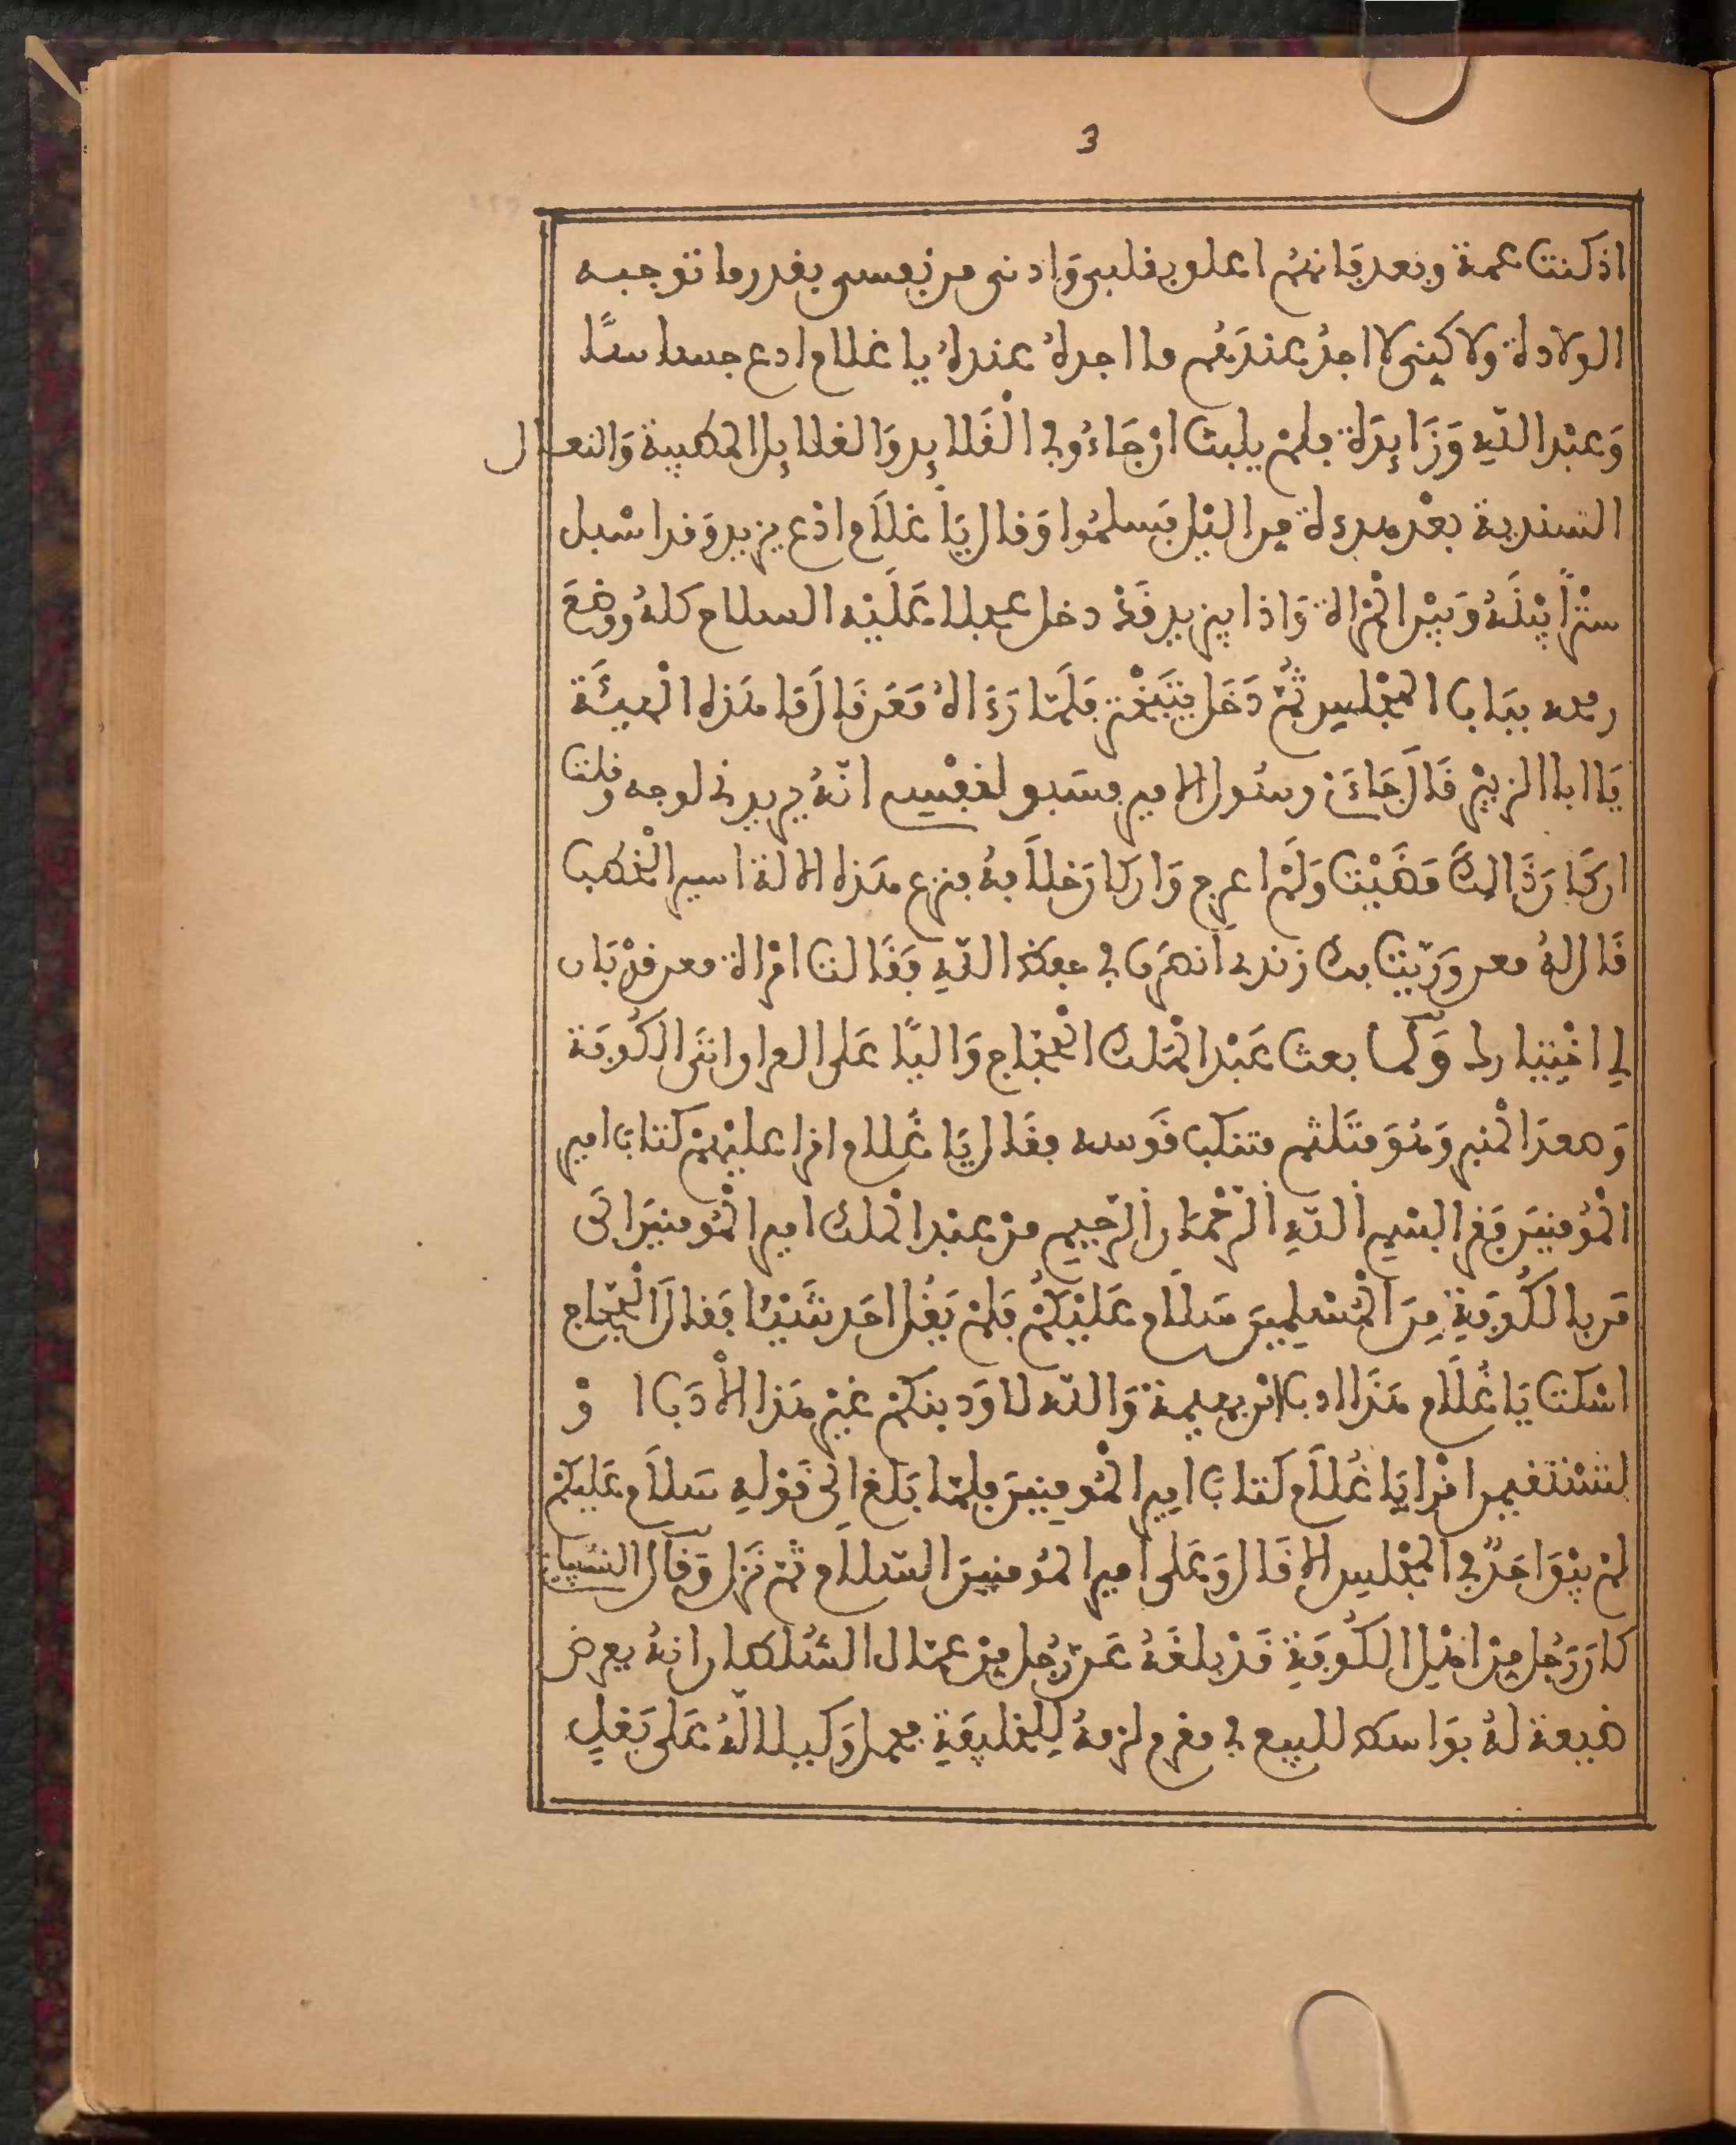 3
اذ كنت عمة وبعد فانهم اعلو بفلبي وادنى من نفسي بفدر ما توجبه
الولادة ولاكيني لا اجد عندهم ما اجده عندك يا غلام ادع حسنا
وعبد الله وزايدة فلم يلبث ان جاءوني الفلايد والغلايل المطيبة والنعال
السندية بعد مدءة من اليل فسلموا وفال يا غلام ادع يزيد وفد اسبل
سترا بينه وبين المراة واذا يزيد فد دخل عليه السلاح كله ووضع
رمحه بباب المجلس ثم دخل يتبختر فلما رءاه معن فال ما هذه الهيئة
يا ابا الزبير فال جاءني رسول الامير فسبو لنفيسي انه يريدني لوجه وفلت
ان كان ذالك مضيت ولم اعرج وان كان خلافه فنزع هذه الالة ايسر الخطب
فال له معن وريت بك زنادي انصرف في حفظ الله ففالت امراة معن فد بان
لي اختيارك ولما بعث عبد الملك الحجاج واليا على العراو اتى الكوفة
وصعد المنبر وهو متلثم متنكب فوسه ففال يا غلام افرا عليهم كتاب امير
المؤمنين ففرا بسم الله الرحمان الرحيم من عبد الملك امير المومنين الى
من بالكوفة من المسلمين سلام عليكم فلم يفل احد شيئا ففال الحجاج
اسكت يا غلام هذا ادب ابن نهية والله لاودبنكم غير هذا الادب او
لتستفيمن افرا يا غلام كتاب امير المومنين فلما بلغ الى فوله سلام عليكم
لم يبو احد في المجلس الا فال وعلى امير المومنين السلام ثم نزل وفال
كان رجل من اهل الكوفة فد بلغه عن رجل من عمال السلطان انه يعرض
ضيعة له بواسط للبيع في مغرم لزمه للخليفة فحمل وكيلا له على بغل